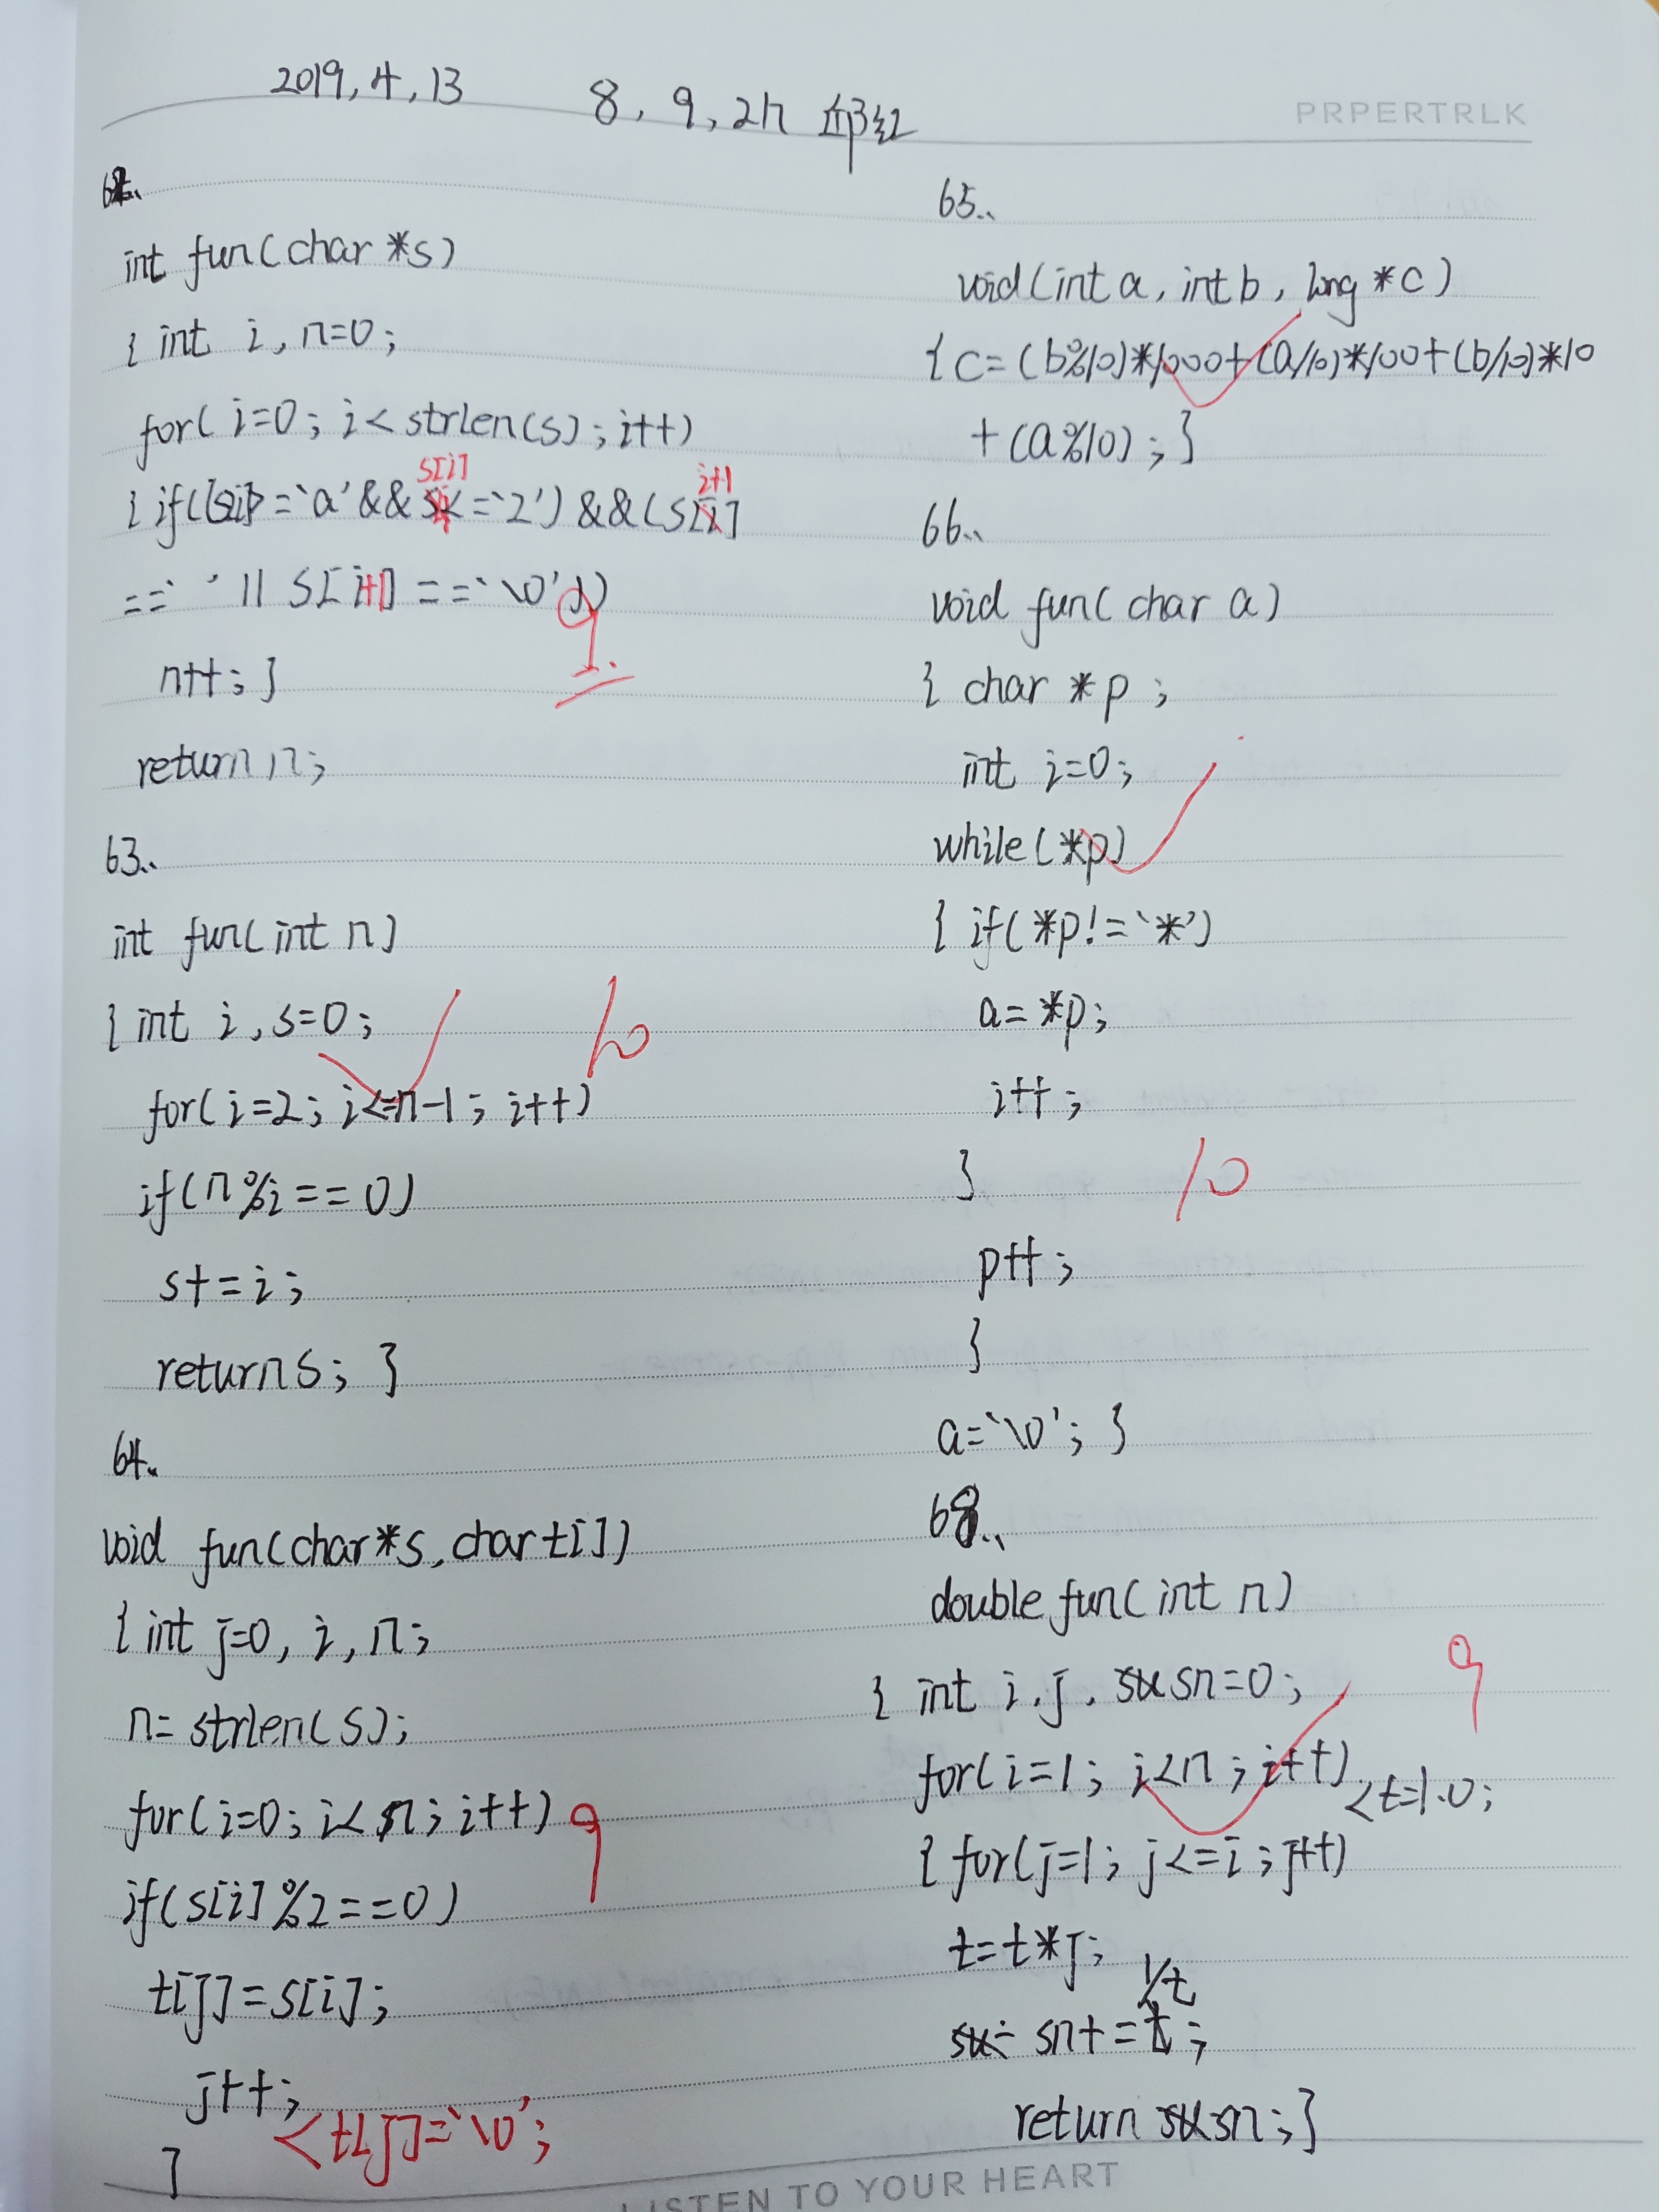 2019,4,13 8,9,2h
PRPERTRLK
62..
int fun(char *s)
{ int i,n=0;
for(i=0; i<strlen(s);i++)
s[i] i+1
{ if((s[i]>='a'&&s<='z')&&(s[i]
==' '|| s[i+1]=='\0'))
9
n++;}
return n;
63..
int fun(int n)
{ int i,s=0;
10
for(i=2; i<=n-1; i++)
if(n%i==0)
s+=i;
return s; }
64..
void fun(char*s,char t[])
{ int j=0, i, n;
n=strlen(s);
for(i=0; i<n; i++)
9
if(s[i]%2==0)
t[j]=s[i];
j++;
<t[j]='\0';
}
65..
void(int a, int b, long *c)
{ c=(b%10)*1000+(a/10)*100+(b/10)*10
+(a%10); }
66..
void fun(char a)
{ char *p;
int i=0;
while(*p)
{ if(*p!='*')
a=*p;
i++;
}
10
p++;
}
a='\0'; }
68..
double fun(int n)
{ int i,j, sn=0;
9
for(i=1; i<n; i++)
<t=1.0;
{ for(j=1; j<=i; j++)
t=t*j;
1/t
sn+=t;
return sn;}
LISTEN TO YOUR HEART